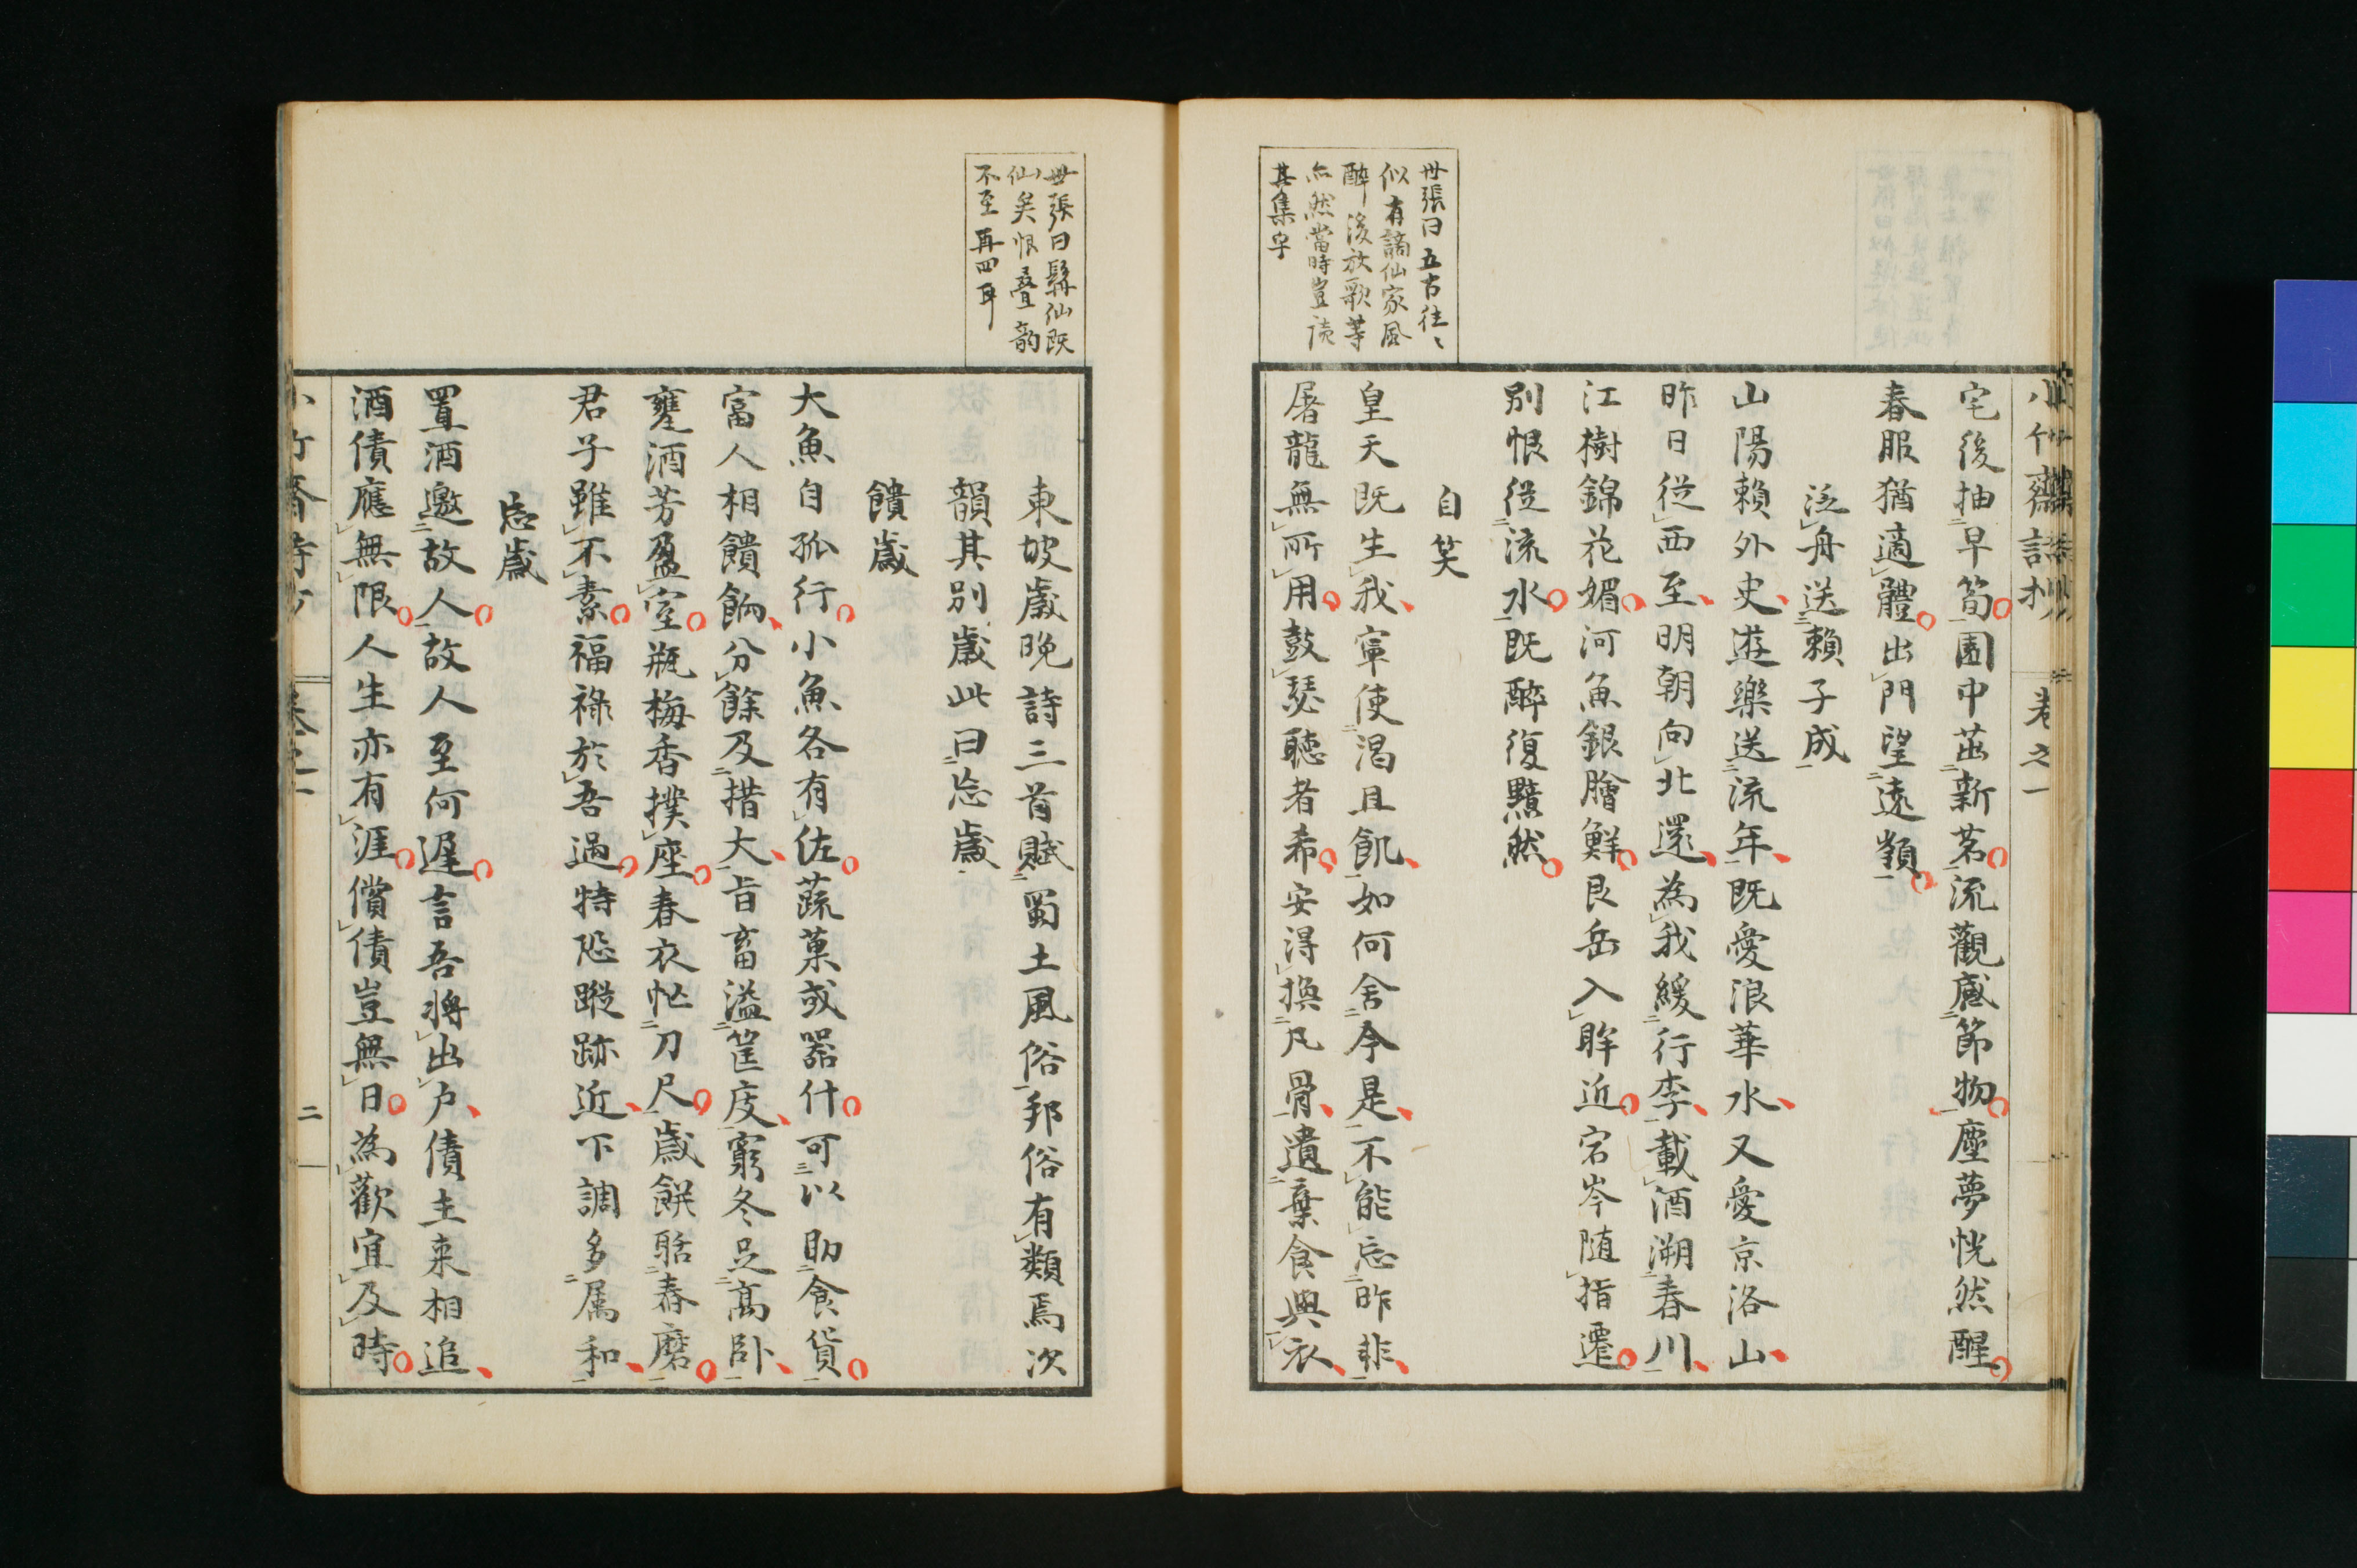 小竹齋詩抄 卷之一
宅後抽早筍園中茁新茗流觀感節物塵夢恍然醒
春服猶適體出門望遠顙
泛舟送賴子成
山陽賴外史遊樂送流年既愛浪華水又愛京洛山
昨日從西至明朝向北還為我緩行李載酒溯春川
江樹錦花媚河魚銀膾鮮艮岳入眸近宕岑随指遷
別恨從流水既醉復黯然
自笑
皇天既生我寧使渴且飢如何舍今是不能忘昨非
屠龍無所用鼓瑟聽者希安得換凡骨遺棄食與衣
世張曰五古往〻
似有謫仙家風
醉後放歌等
亦然當時豈讀
其集乎
世張曰髯仙既
仙矣恨疊韵
不至再四耳
東坡歲晚詩三首賦蜀土風俗邦俗有類焉次
韻其別歲此曰忘歲
饋歲
大魚自孤行小魚各有佐蔬菓或器什可以助食貨
富人相饋餉分餘及措大旨畜溢筐庋窮冬足高卧
甕酒芳盈室瓶梅香撲座春衣忙刀尺歲餅聒舂磨
君子雖不素福祿於吾過特恐蹤跡近下調多属和
忘歲
置酒邀故人故人至何遲言吾將出户債主来相追
酒債應無限人生亦有涯償債豈無日為歡宜及時
小竹齋詩抄 卷之一 二